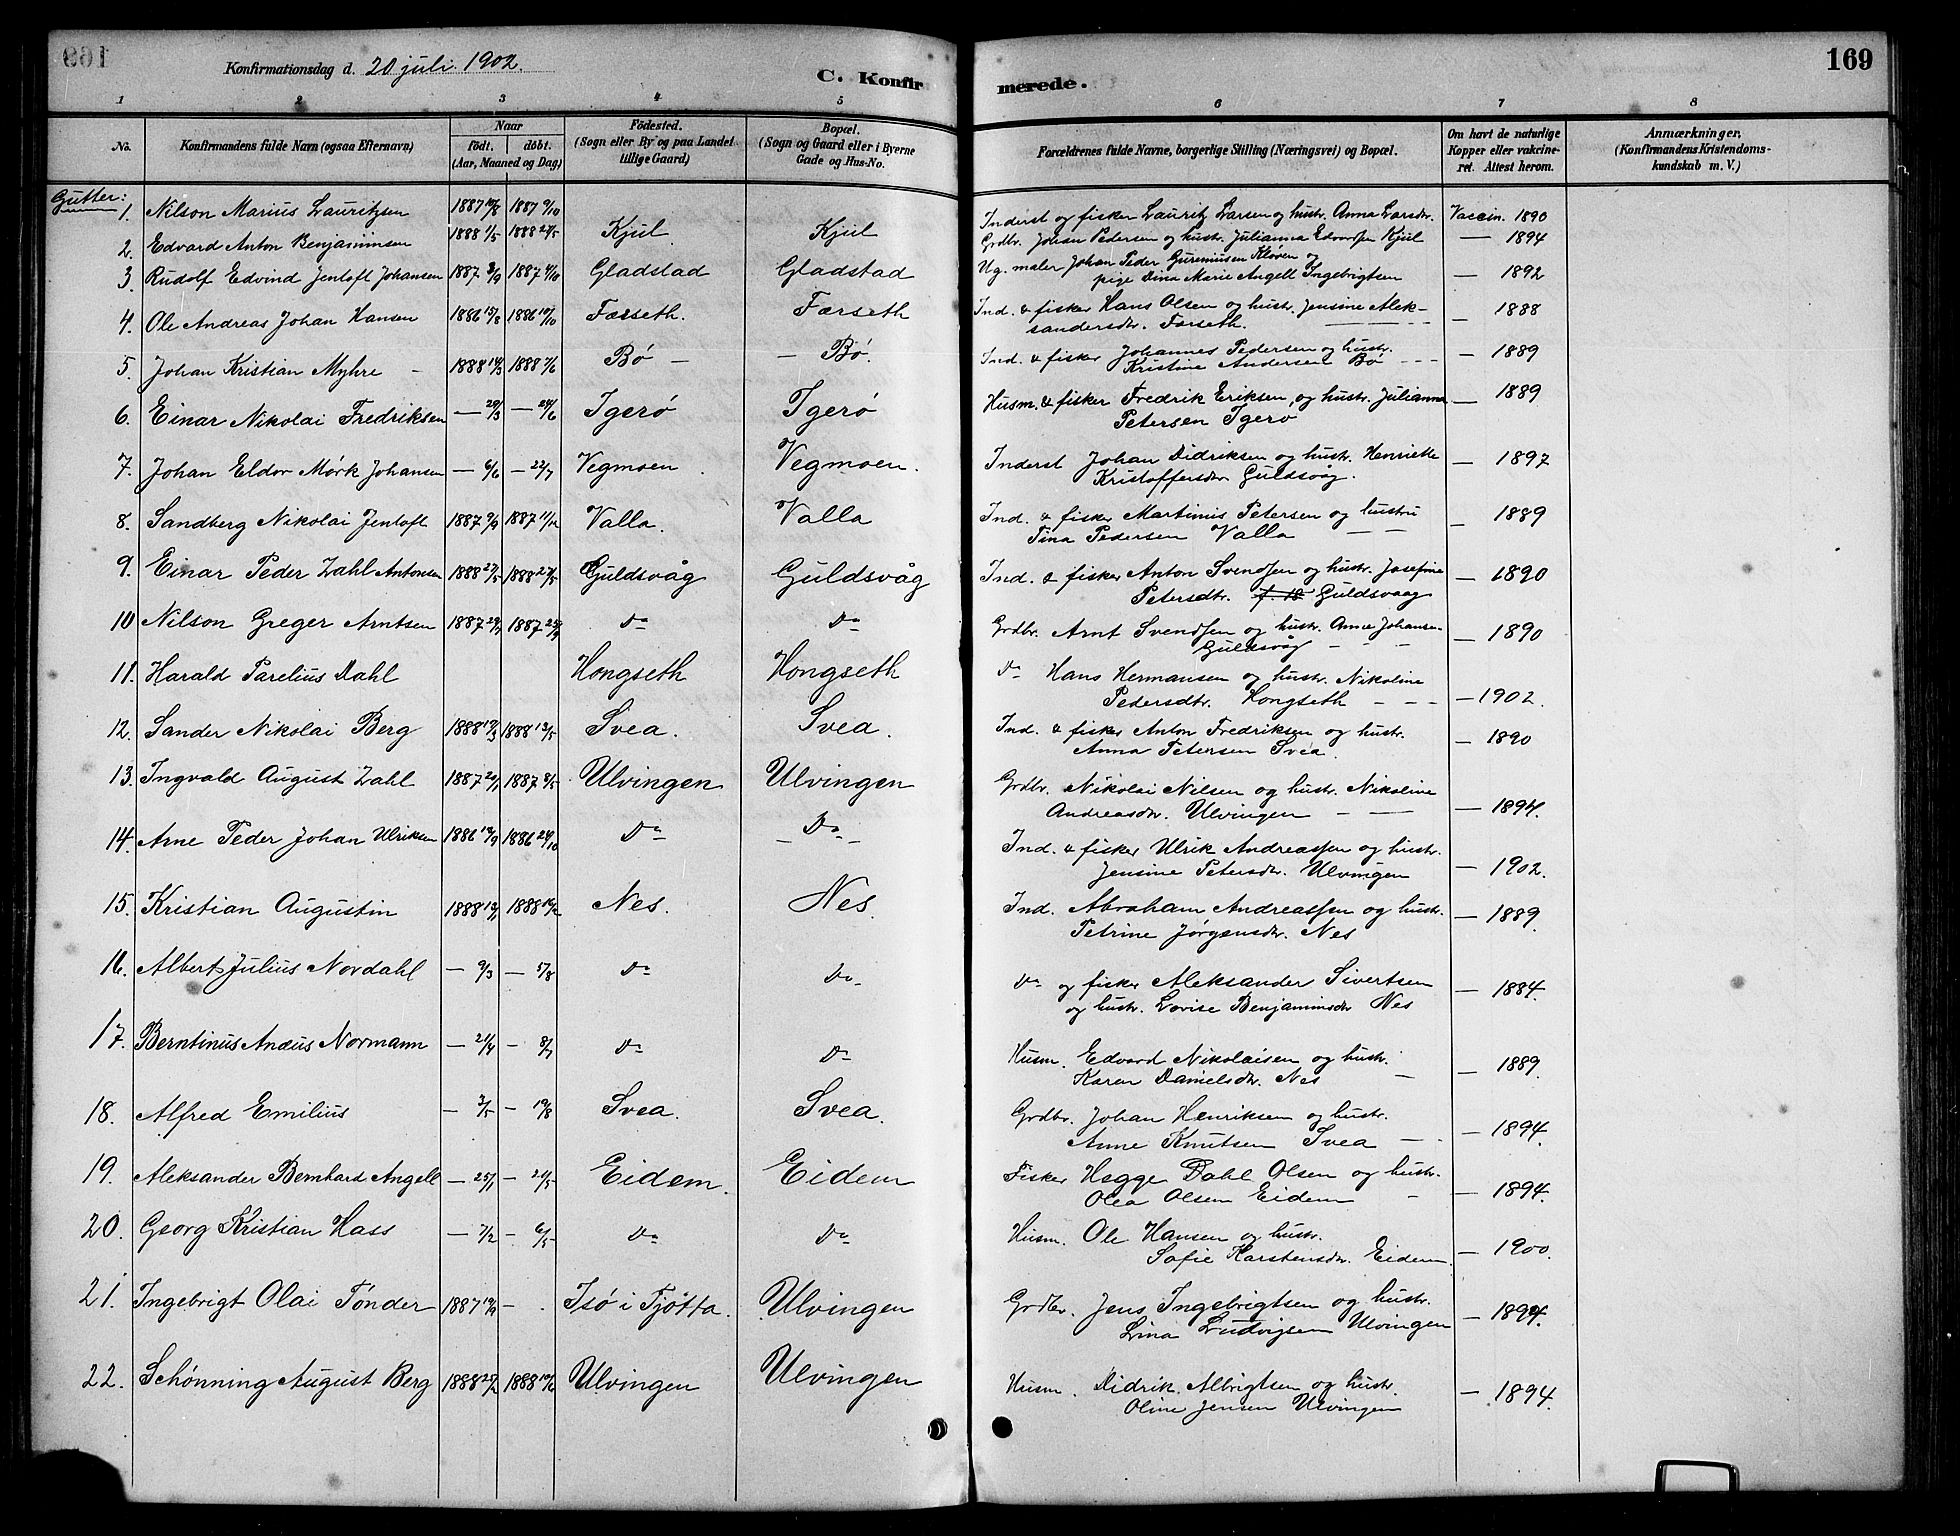 169
Konfirmationsdag d. 20 juli 1902.
C. Konfirmerede.
1 2 3 4 5 6 7 8
No. | Konfirmandens fulde Navn (ogsaa Efternavn) | Naar födt. döbt. (Aar, Maaned og Dag) | Födested. (Sogn eller By og paa Landet tillige Gaard) | Bopæl. (Sogn og Gaard eller i Byerne Gade og Hus-No. | Forældrenes fulde Navne, borgerlige Stilling (Næringsvei) og Bopæl. | Om havt de naturlige Kopper eller vakcineret. Attest herom. | Anmærkninger, (Konfirmandens Kristendomskundskab m. V.)
Gutter:
1. Nilson Marius Lauritzen 1887 1887 9/10 Inderst og fisker Lauritz Larsen og hustr. Anna Larsdr. Vaccin. 1890
2. Edvard Anton Benjaminsen 1888 1/5 1888 27/5 Kjul Kjul Grdbr. Johan Pedersen og hustr. Julianna Edvardsen Kjul — 1894
3. Rudolf Edvind Jentoft Johansen 1887 3/9 1887 9/10 Gladstad Gladstad Ug. maler Johan Peder Kløven og
pige Dina Marie Angell Ingebrigtsen — 1892
4. Ole Andreas Johan Hansen 1886 15/8 1886 10/10 Færseth. Færseth Ind. & fisker Hans Olsen og hustr. Jensine Alek-
sandersdtr. Færseth. — 1888
5. Johan Kristian Myhre 1888 14/3 1888 7/6 Bö — — Bö. Ind. & fisker Johannes Pedersen og hustr.
Kristine Andersen Bö — 1889
6. Einar Nikolai Fredriksen — 29/3 — 24/6 Igerö Igerö Husm. & fisker Fredrik Eriksen og hustr. Julianna
Petersen Igerö — 1889
7. Johan Eldor Mørk Johansen — 6/6 — 22/7 Vegmoen Vegmoen. Inderst Johan Didriksen og hustr. Henriette
Kristoffersdr Guldsvåg. — 1897
8. Sandberg Nikolai Jentoft 1887 9/9 1887 11/12 Valla. Valla Ind. & fisker Martinus Petersen og hustru
Tina Pedersen Valla — 1889
9. Einar Peder Zahl Antonsen 1888 27/5 1888 27/5 Guldsvåg Guldsvåg Ind. & fisker Anton Svendsen og hustr. Josefine
Petersdtr. Guldsvaag — 1890
10 Nilson Greger Arntsen 1887 29/7 1887 25/9 Do Do Grdbr. Arnt Svendsen og hustr. Anne Johansen
Guldsvåg — 1890
11. Harald Parelius Dahl Hongseth Hongseth Do Hans Hermansen og hustr. Nikoline
Pedersdtr. Hongseth — 1902.
12. Sander Nikolai Berg 1888 1888 13/5 Svea. Svea. Ind. & fisker Anton Fredriksen og hustr.
Anna Petersen Svea. — 1890
13. Ingvald August Zahl 1887 29/1 1887 8/5 Ulvingen Ulvingen Grdbr. Nikolai Nilsen og hustr. Nikoline
Andreasdr. Ulvingen — 1894.
14. Arne Peder Johan Ulriksen 1886 19/9 1886 24/10 Do — Do — Ind. & fisker Ulrik Andreassen og hustr.
Jensine Petersdr. Ulvingen — 1902.
15. Kristian Augustin 1888 1888 Nes. Nes. Ind. Abraham Andreassen og hustr.
Petrine Jørgensdr. Nes — 1889.
16. Albert Julius Nordahl — 9/3 — 5/8 Do Do Do og fisker Aleksander Sivertsen
og hustr. Lovise Benjaminsdr Nes — 1884.
17. Berntinus Anæus Normann — 21/4 — 8/7 Do Do Husm. Edvard Nikolaisen og hustr.
Karen Danielsdr. Nes — 1889.
18. Alfred Emilius — 3/5 — 19/8 Svea. Svea. Grdbr. Johan Henriksen og hustr.
Anne Knutsen Svea — 1894.
19. Aleksander Bernhard Angell — 25/1 — 21/5 Eidem. Eidem Fisker Hegge Dahl Olsen og hustr.
Olea Olsen Eidem — 1894.
20. Georg Kristian Hass — 7/2 — 6/5 Do Do Husm. Ole Hansen og hustr.
Sofie Karstensdr. Eidem. — 1900.
21. Ingebrigt Olai Tønder 1887 19/9 — Isö i Tjötta. Ulvingen Grdbr. Jens Ingebrigtsen og hustr.
Lina Ludvigsen Ulvingen — 1894.
22. Schønning August Berg 1888 25/2 1888 10/6 Ulvingen Ulvingen Husm. Didrik Albrigtsen og hustr.
Oline Jensen Ulvingen — 1894.